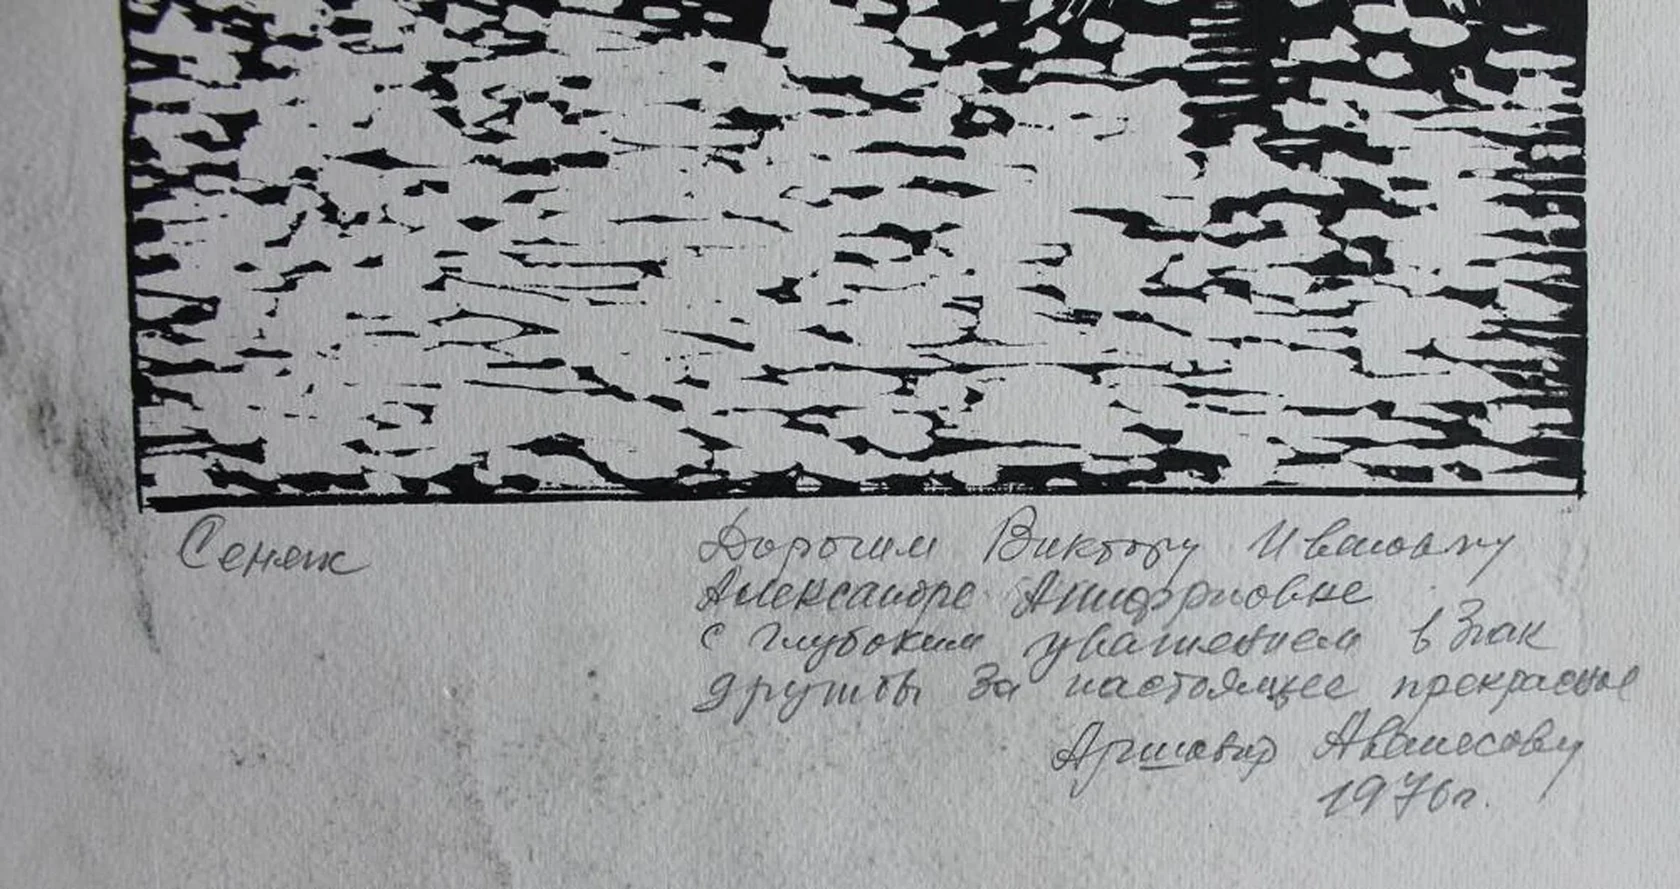 Сенеж
Дорогим Виктору Ивановичу
Александре Анифриовне
с глубоким уважением в знак
дружбы за настоящее прекрасное
Аршавир Аванесову
1976г.